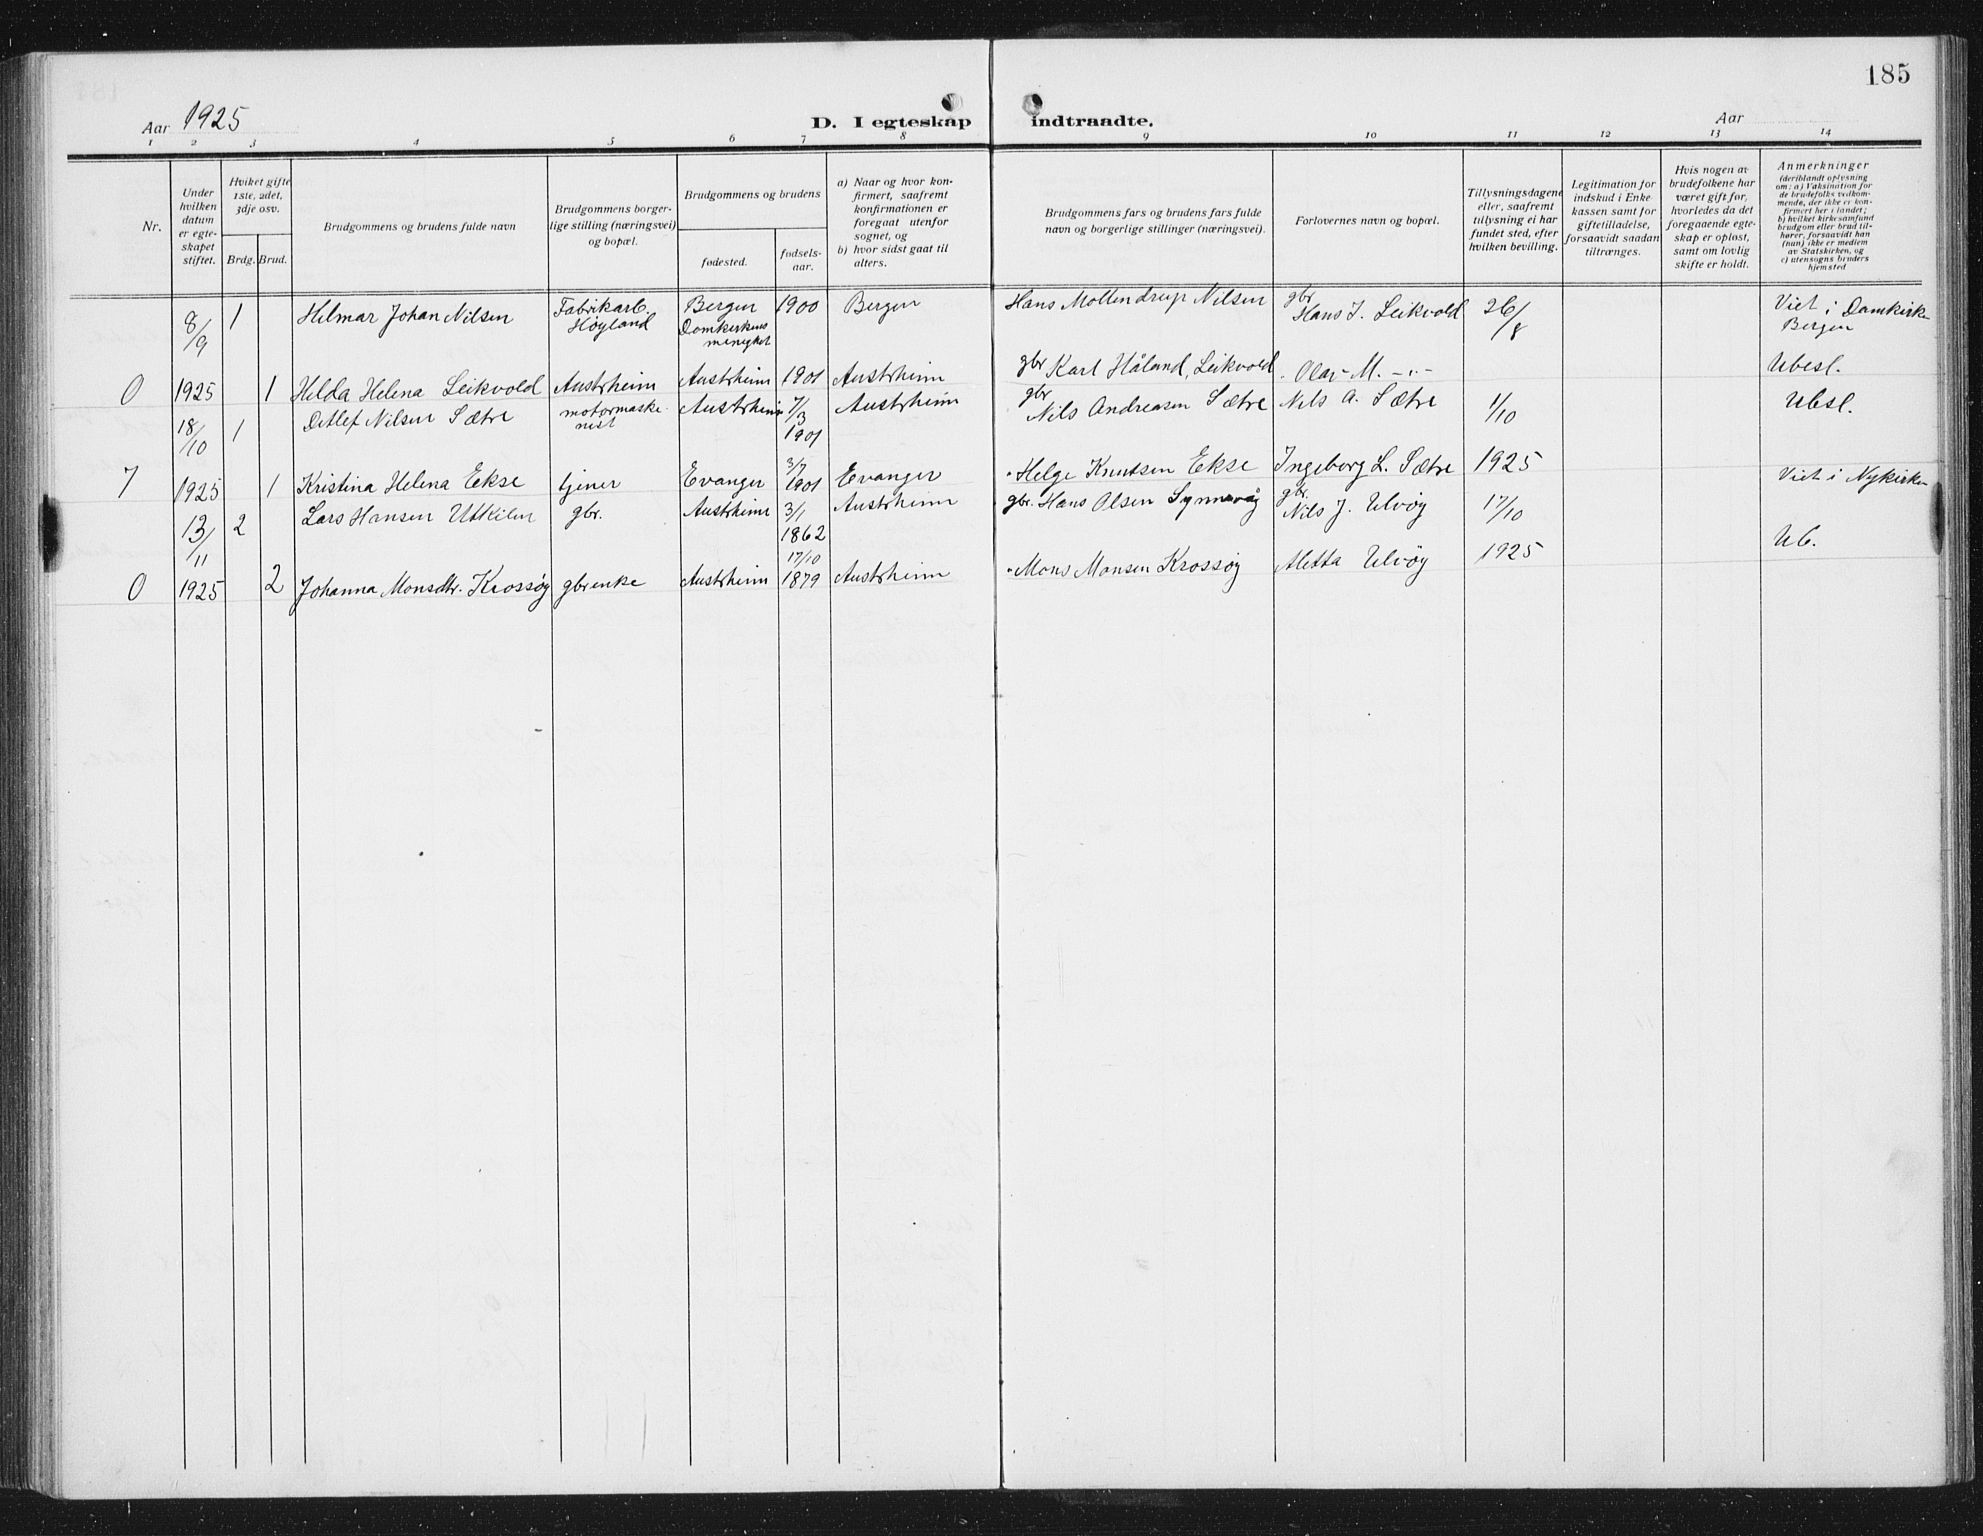 185
Aar 1925
D. I egteskap indtraadte.
Aar
1 2 3 4 5 6 7 8 9 10 11 12 13 14
Nr.
Under hvilken datum er egte- skapet stiftet.
Hviket gifte 1ste, 2det, 3dje osv.
Brdg. Brud.
Brudgommens og brudens fulde navn
Brudgommens borger- lige stilling (næringsvei) og bopæl.
Brudgommens og brudens
fødested.
fødsels- aar.
a) Naar og hvor kon- firmert, saafremt konfirmationen er foregaat utenfor sognet, og
b) hvor sidst gaat til alters.
Brudgommens fars og brudens fars fulde navn og borgerlige stillinger (næringsvei).
Forlovernes navn og bopæl.
Tillysningsdagene eller, saafremt tillysning ei har fundet sted, efter hvilken bevilling.
Legitimation for indskud i Enke- kassen samt for giftetilladelse, forsaavidt saadan tiltrænges.
Hvis nogen av brudefolkene har været gift før, hvorledes da det foregaaende egte- skap er opløst, samt om lovlig skifte er holdt.
Anmerkninger (deriblandt oplysning om: a) Vaksination for de brudefolks vedkom- mende, der ikke er kon- firmert her i landet; b) hvilket kirkesamfund brudgom eller brud til- hører, forsaavidt han (hun) ikke er medlem av Statskirken, og c) utensogns bruders hjemsted
8/9 1 Hilmar Johan Nilsen Fabrikarb. Høyland Bergen Domkirkens menighet 1900 Bergen Hans Mollendrup Nilsen gbr Hans J. Leikvold 26/8 Viet i Domkirke Bergen
0 1925 1 Hilda Helena Leikvold Austrheim Austrheim 1901 Austrheim gbr Karl Håland, Leikvold Olav M. -"- Ubesl.
18/10 1 Ditlef Nilsen Sætre motormaske- nist Austrheim 7/3 1901 Austrheim gbr Nils Andreasen Sætre Nils A. Sætre 1/10 Ubsl.
7 1925 1 Kristina Helena Ekse tjener Evanger 3/7 1901 Evanger " Helge Knutsen Ekse Ingeborg L. Sætre 1925 Viet i Nykirken
13/11 2 Lars Hansen Utkilen gbr. Austrheim 3/1 1862 Austrheim gbr. Hans Olsen Synnevåg gbr. Nils J. Ulvøy 17/10 Ub.
0 1925 2 Johanna Monsdtr. Krossøy gbrenke Austrheim 17/10 1879 Austrheim " Mons Monsen Krossøy Metta Ulvøy 1925